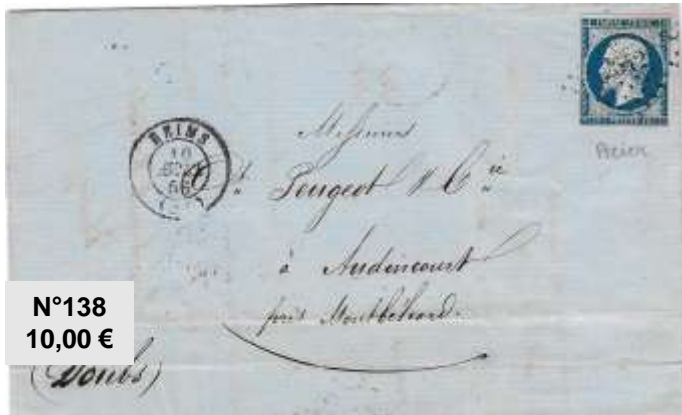 REIMS
10
56
Messieurs
Peugeot & Cie
à Audincourt
près Montbéliard.
(Doubs)
Acier
N°138
10,00 €